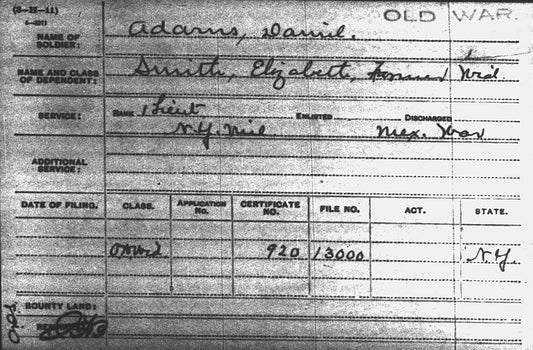 (3-IE-11)
OLD WAR.
NAME OF SOLDIER: Adams, Daniel.
NAME AND CLASS OF DEPENDENT: Smith, Elizabeth, former Wid
SERVICE: RANK 1 Lieut ENLISTED DISCHARGED
N.Y. Mil Mex. War
ADDITIONAL SERVICE:
DATE OF FILING. CLASS. APPLICATION NO. CERTIFICATE NO. FILE NO. ACT. STATE.
920 13000 N.Y.
BOUNTY LAND: